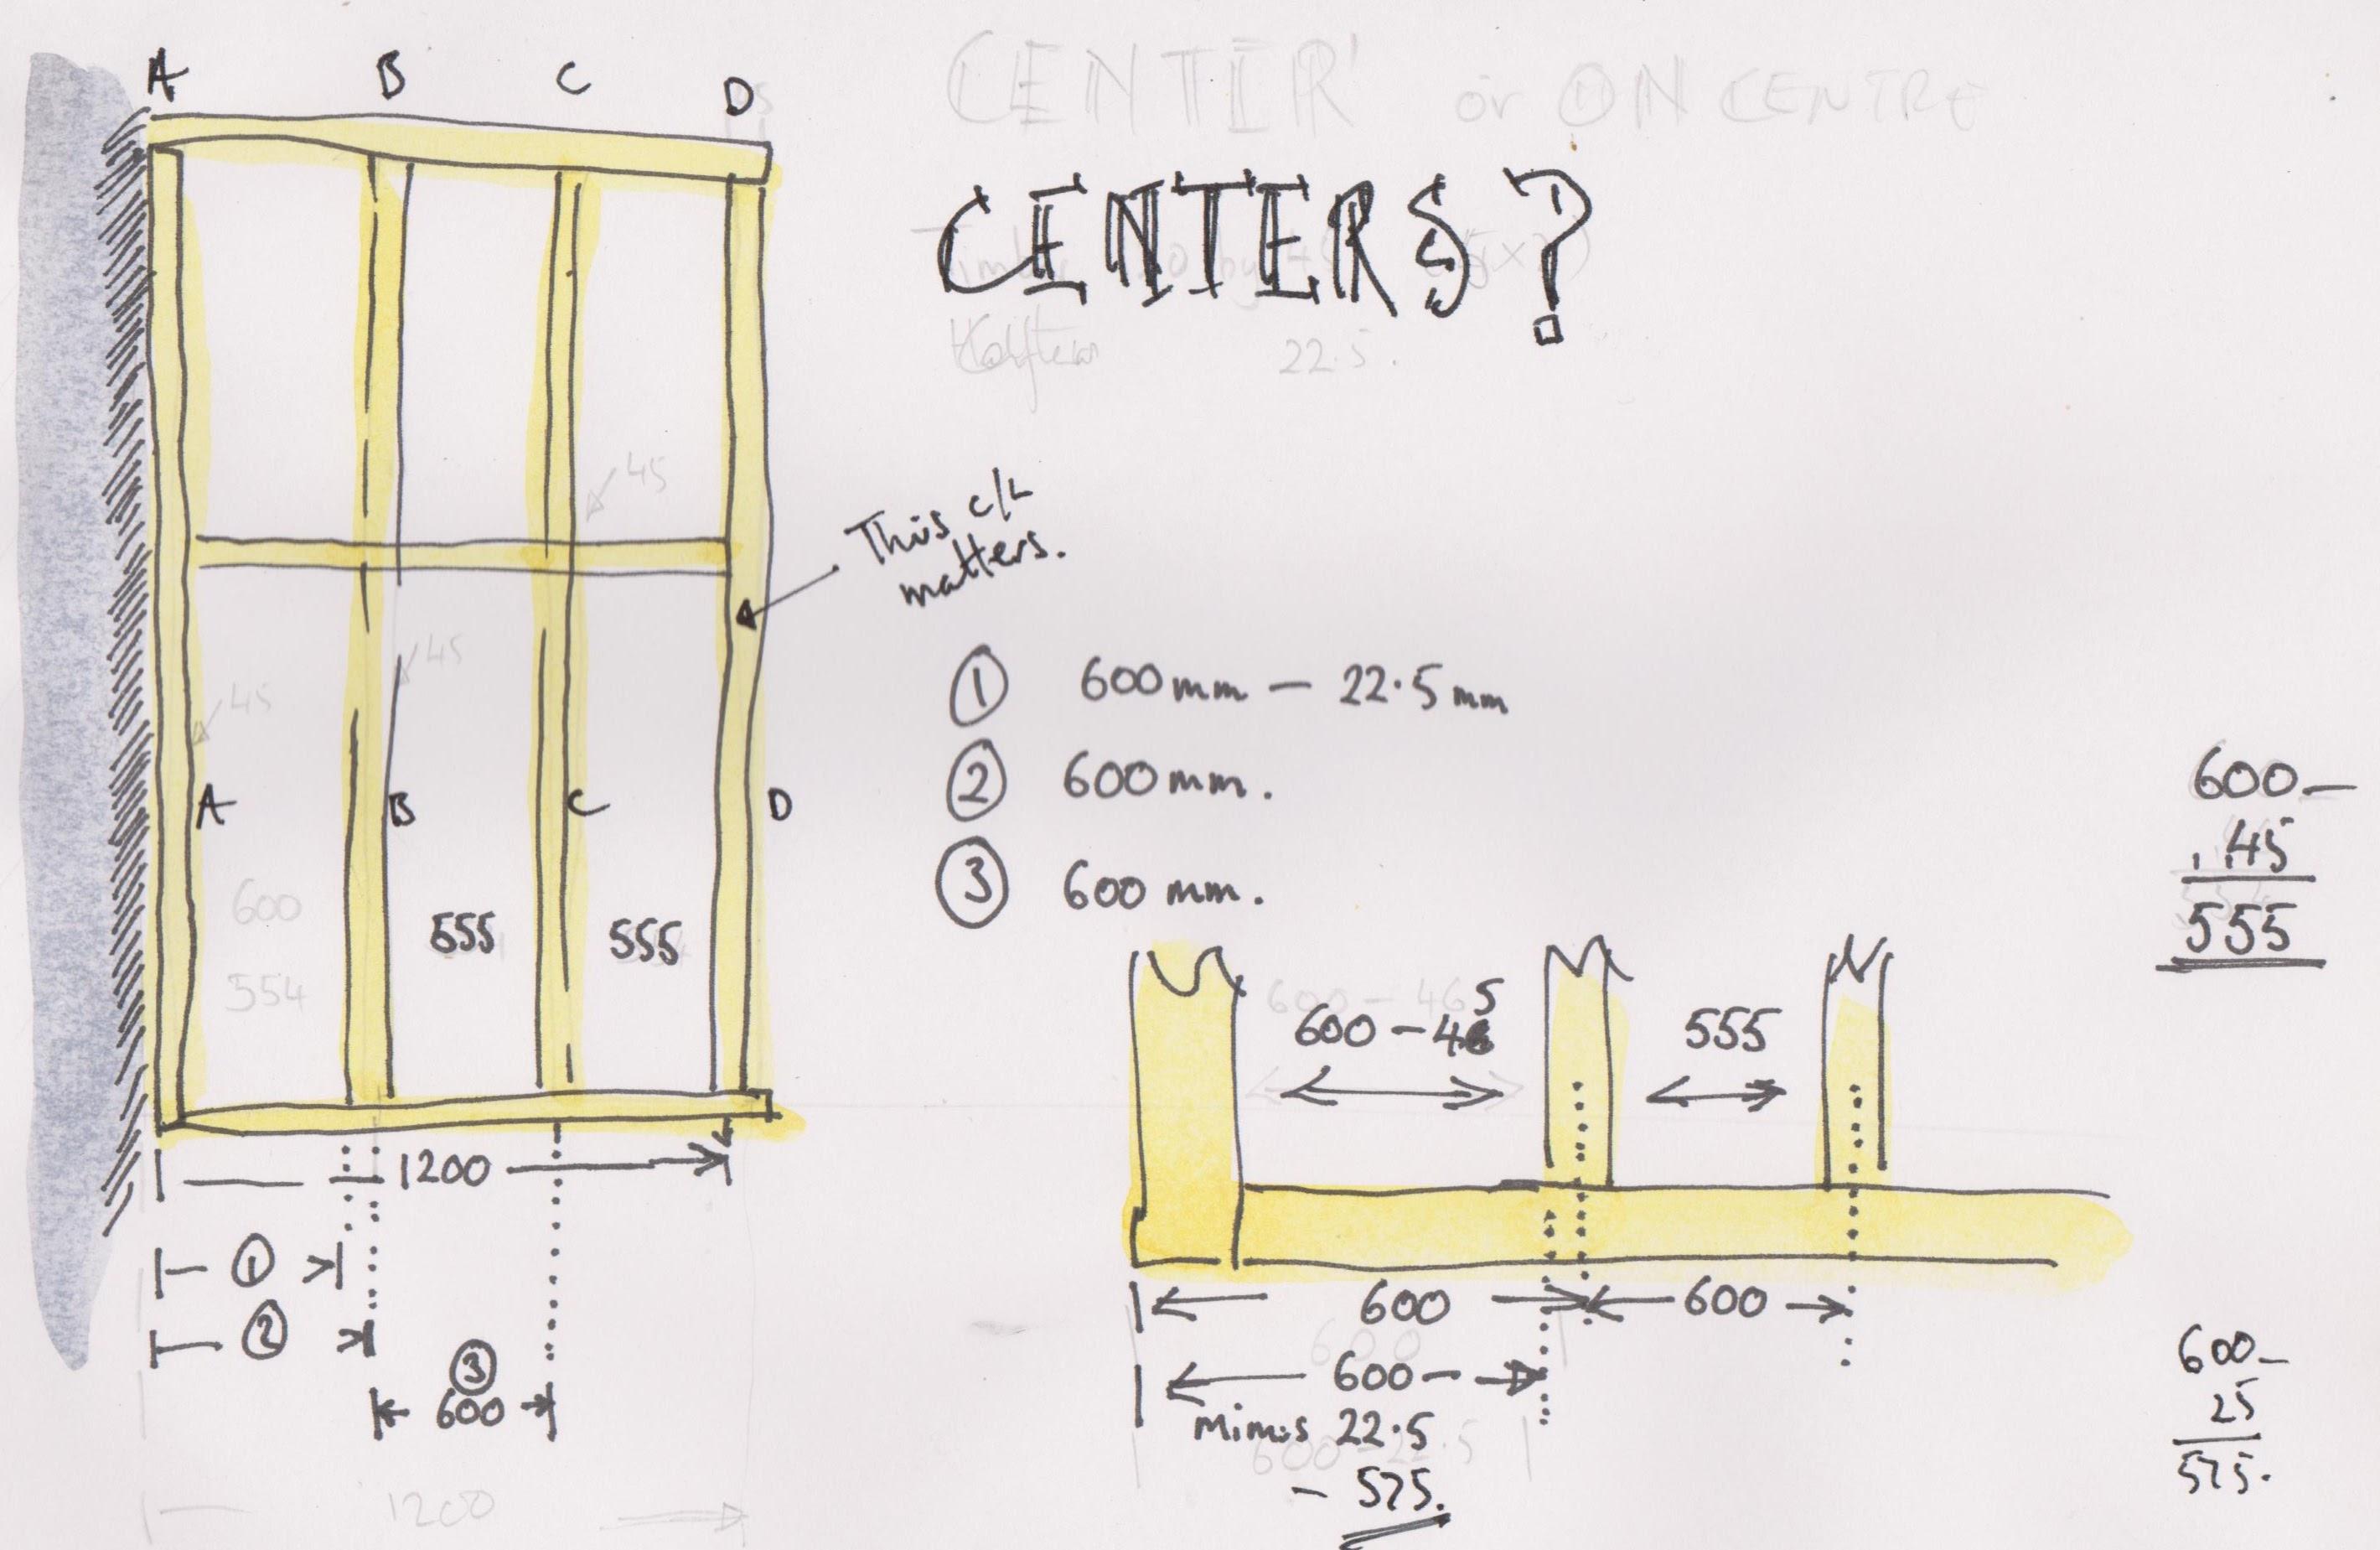 A B C D
CENTER' or ON CENTRE
CENTERS?
22.5.
45
This c/L
matters.
45
45
① 600mm - 22.5mm
② 600mm.
③ 600mm.
A B C D
600
554
555 555
1200
①
②
③
600
1200
600 -
45
555
600 - 46
5
600 - 46
555
600 600
600 -
minus 22.5
600 - 22.5
- 575.
600 -
25
575.